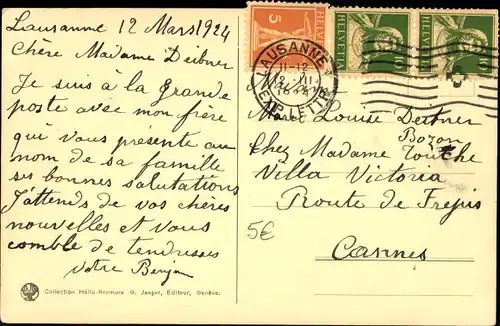 Lausanne 12 Mars 1924
Chère Madame Deibner
Je suis à la Grande
poste avec mon frère
qui vous présente au
nom de sa famille
ses bonnes salutations
J'attends de vos chères
nouvelles et vous
comble de tendresses
Votre
Collection Hélio-Bromure G. Jaeger, Editeur, Genève.
5
HELVETIA
HELVETIA
10
HELVETIA
10
LAUSANNE
11-12
12.III
EXP. LETTR.
Louise Deibner
Bozon
Chez Madame Touche
Villa Victoria
Route de Frejus
Cannes
5€